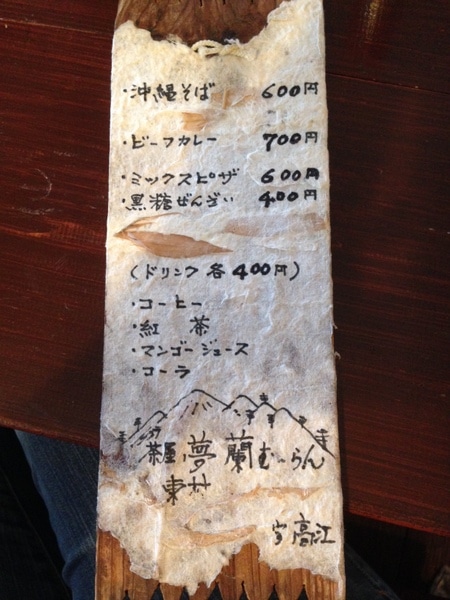 ・沖縄そば 600円
・ビーフカレー 700円
・ミックスピザ 600円
・黒糖ぜんざい 400円
(ドリンク 各400円)
・コーヒー
・紅 茶
・マンゴージュース
・コーラ
茶屋 夢 蘭 むーらん
東村
高江